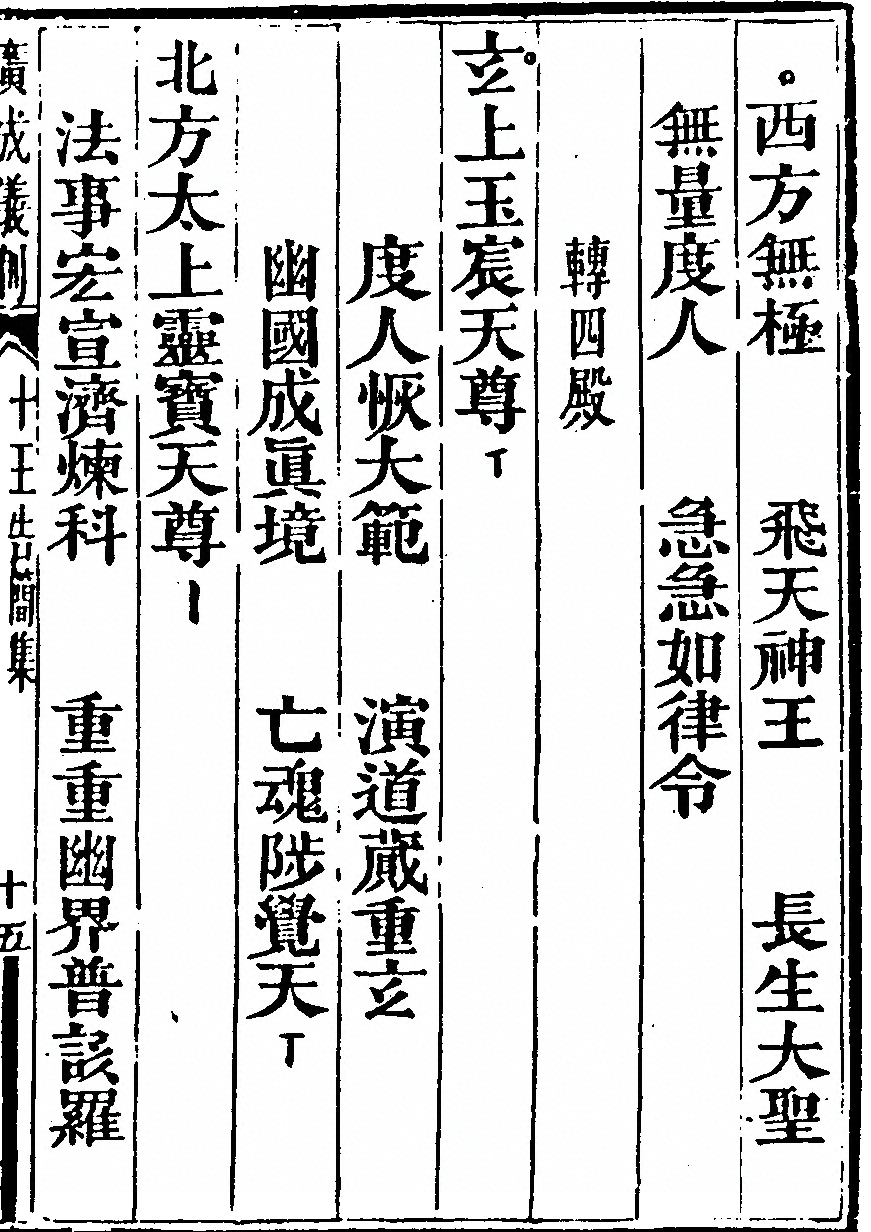 西方無極　飛天神王　長生大聖
無量度人　急急如律令
轉四殿
玄上玉宸天尊
度人恢大範　演道蔵重玄
幽國成眞境　亡魂陟覺天
北方太上靈寶天尊
法事宏宣濟煉科　重重幽界普該羅
廣成儀制　十王集　十五